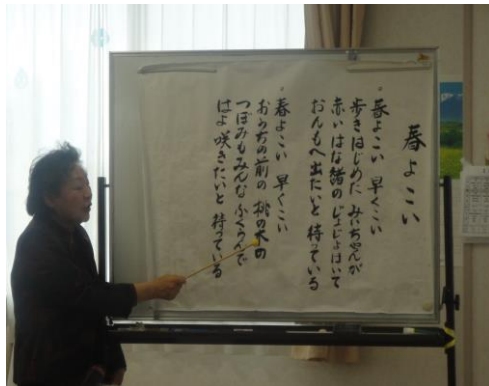 春よこい
。春よこい 早くこい
歩きはじめた みいちゃんが
赤いはな緒の じょじょはいて
おんもへ出たいと 待っている
。春よこい 早くこい
おうちの前の 桃の木の
つぼみもみんな ふくらんで
はよ咲きたいと 待っている